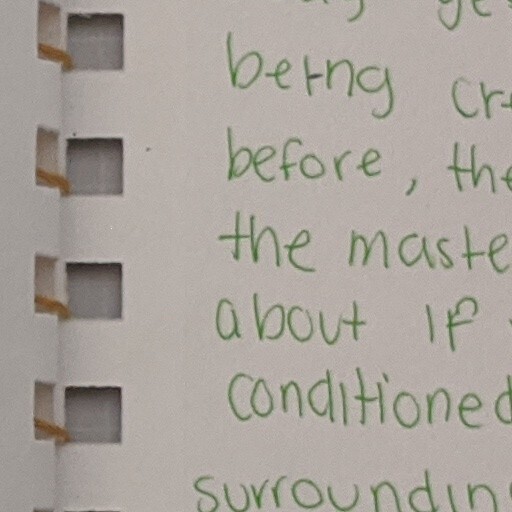 being cr
before, the
the maste
about IF
conditioned
surroundin